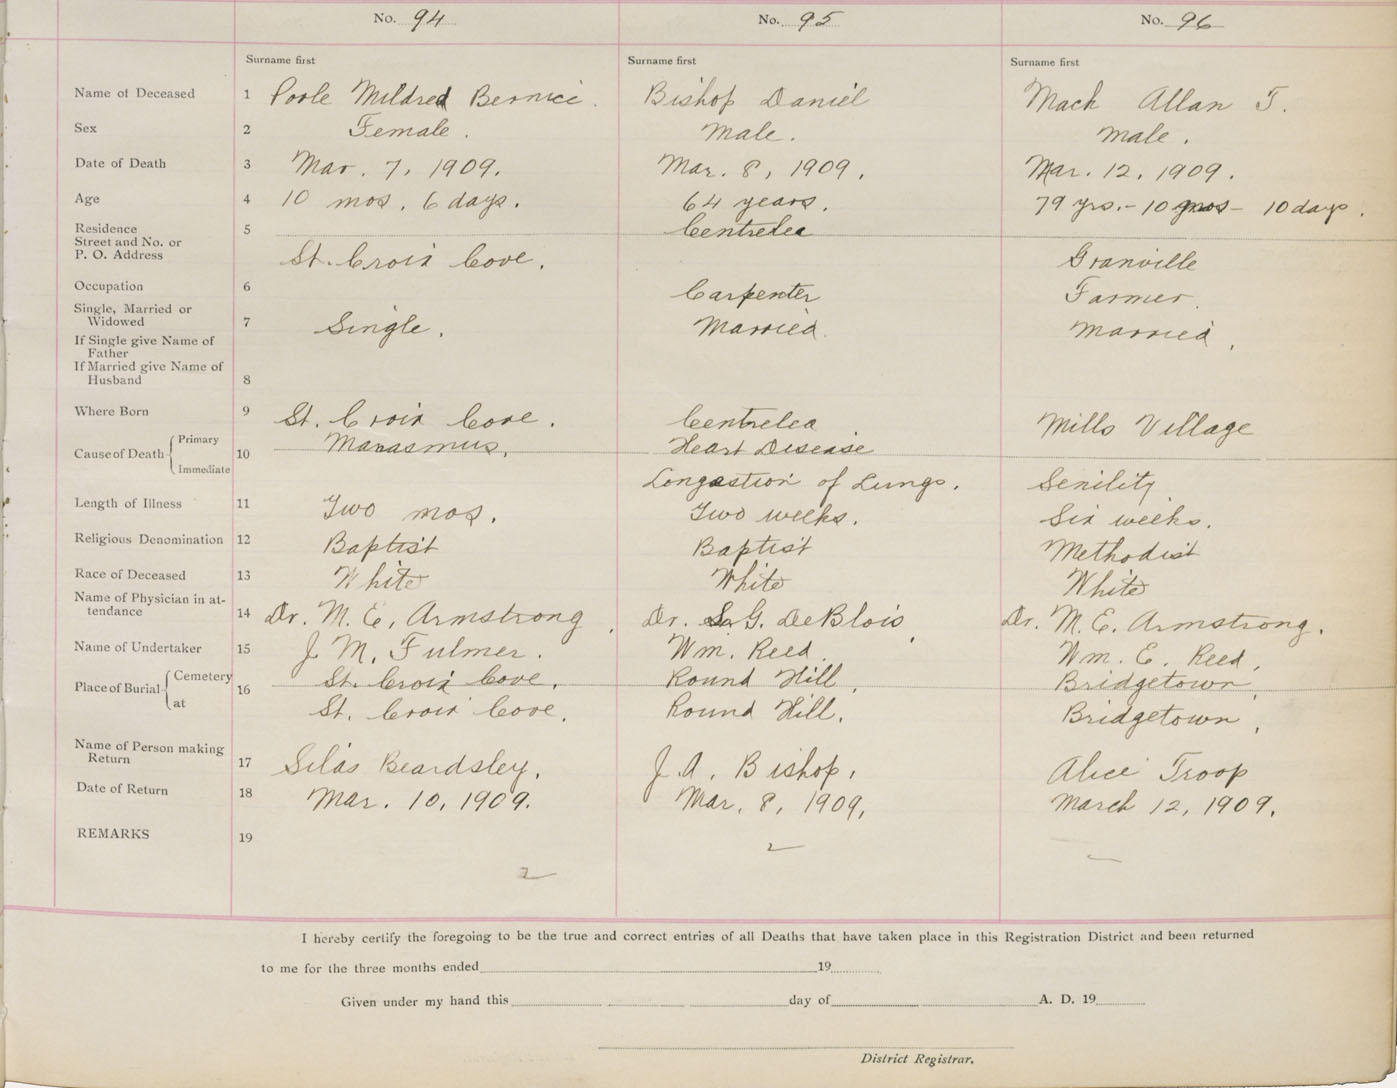 No. 94 No. 95 No. 96
Surname first Surname first Surname first
Name of Deceased 1 Poole Mildred Bernice. Bishop Daniel Mack Allan T.
Sex 2 Female. Male. Male.
Date of Death 3 Mar. 7, 1909. Mar. 8, 1909. Mar. 12, 1909.
Age 4 10 mos. 6 days. 64 years. 79 yrs. - 10 mos - 10 days.
Residence 5 Centrelea
Street and No. or
P. O. Address St. Croix Cove. Granville
Occupation 6 Carpenter Farmer.
Single, Married or
Widowed 7 Single. Married. Married.
If Single give Name of
Father
If Married give Name of
Husband 8
Where Born 9 St. Croix Cove. Centrelea Mills Village
Cause of Death Primary 10 Marasmus. Heart Disease
Immediate Congestion of Lungs. Senility
Length of Illness 11 Two mos. Two weeks. Six weeks.
Religious Denomination 12 Baptist Baptist Methodist
Race of Deceased 13 White White White
Name of Physician in at-
tendance 14 Dr. M. E. Armstrong. Dr. S. G. DeBlois. Dr. M. E. Armstrong.
Name of Undertaker 15 J. M. Fulmer. Wm. Reed. Wm. E. Reed.
Place of Burial Cemetery 16 St. Croix Cove. Round Hill. Bridgetown.
at St. Croix Cove. Round Hill. Bridgetown.
Name of Person making
Return 17 Silas Beardsley. J. A. Bishop. Alice Troop
Date of Return 18 Mar. 10, 1909. Mar. 8, 1909. March 12, 1909.
REMARKS 19
I hereby certify the foregoing to be the true and correct entries of all Deaths that have taken place in this Registration District and been returned
to me for the three months ended 19
Given under my hand this day of A. D. 19
District Registrar.